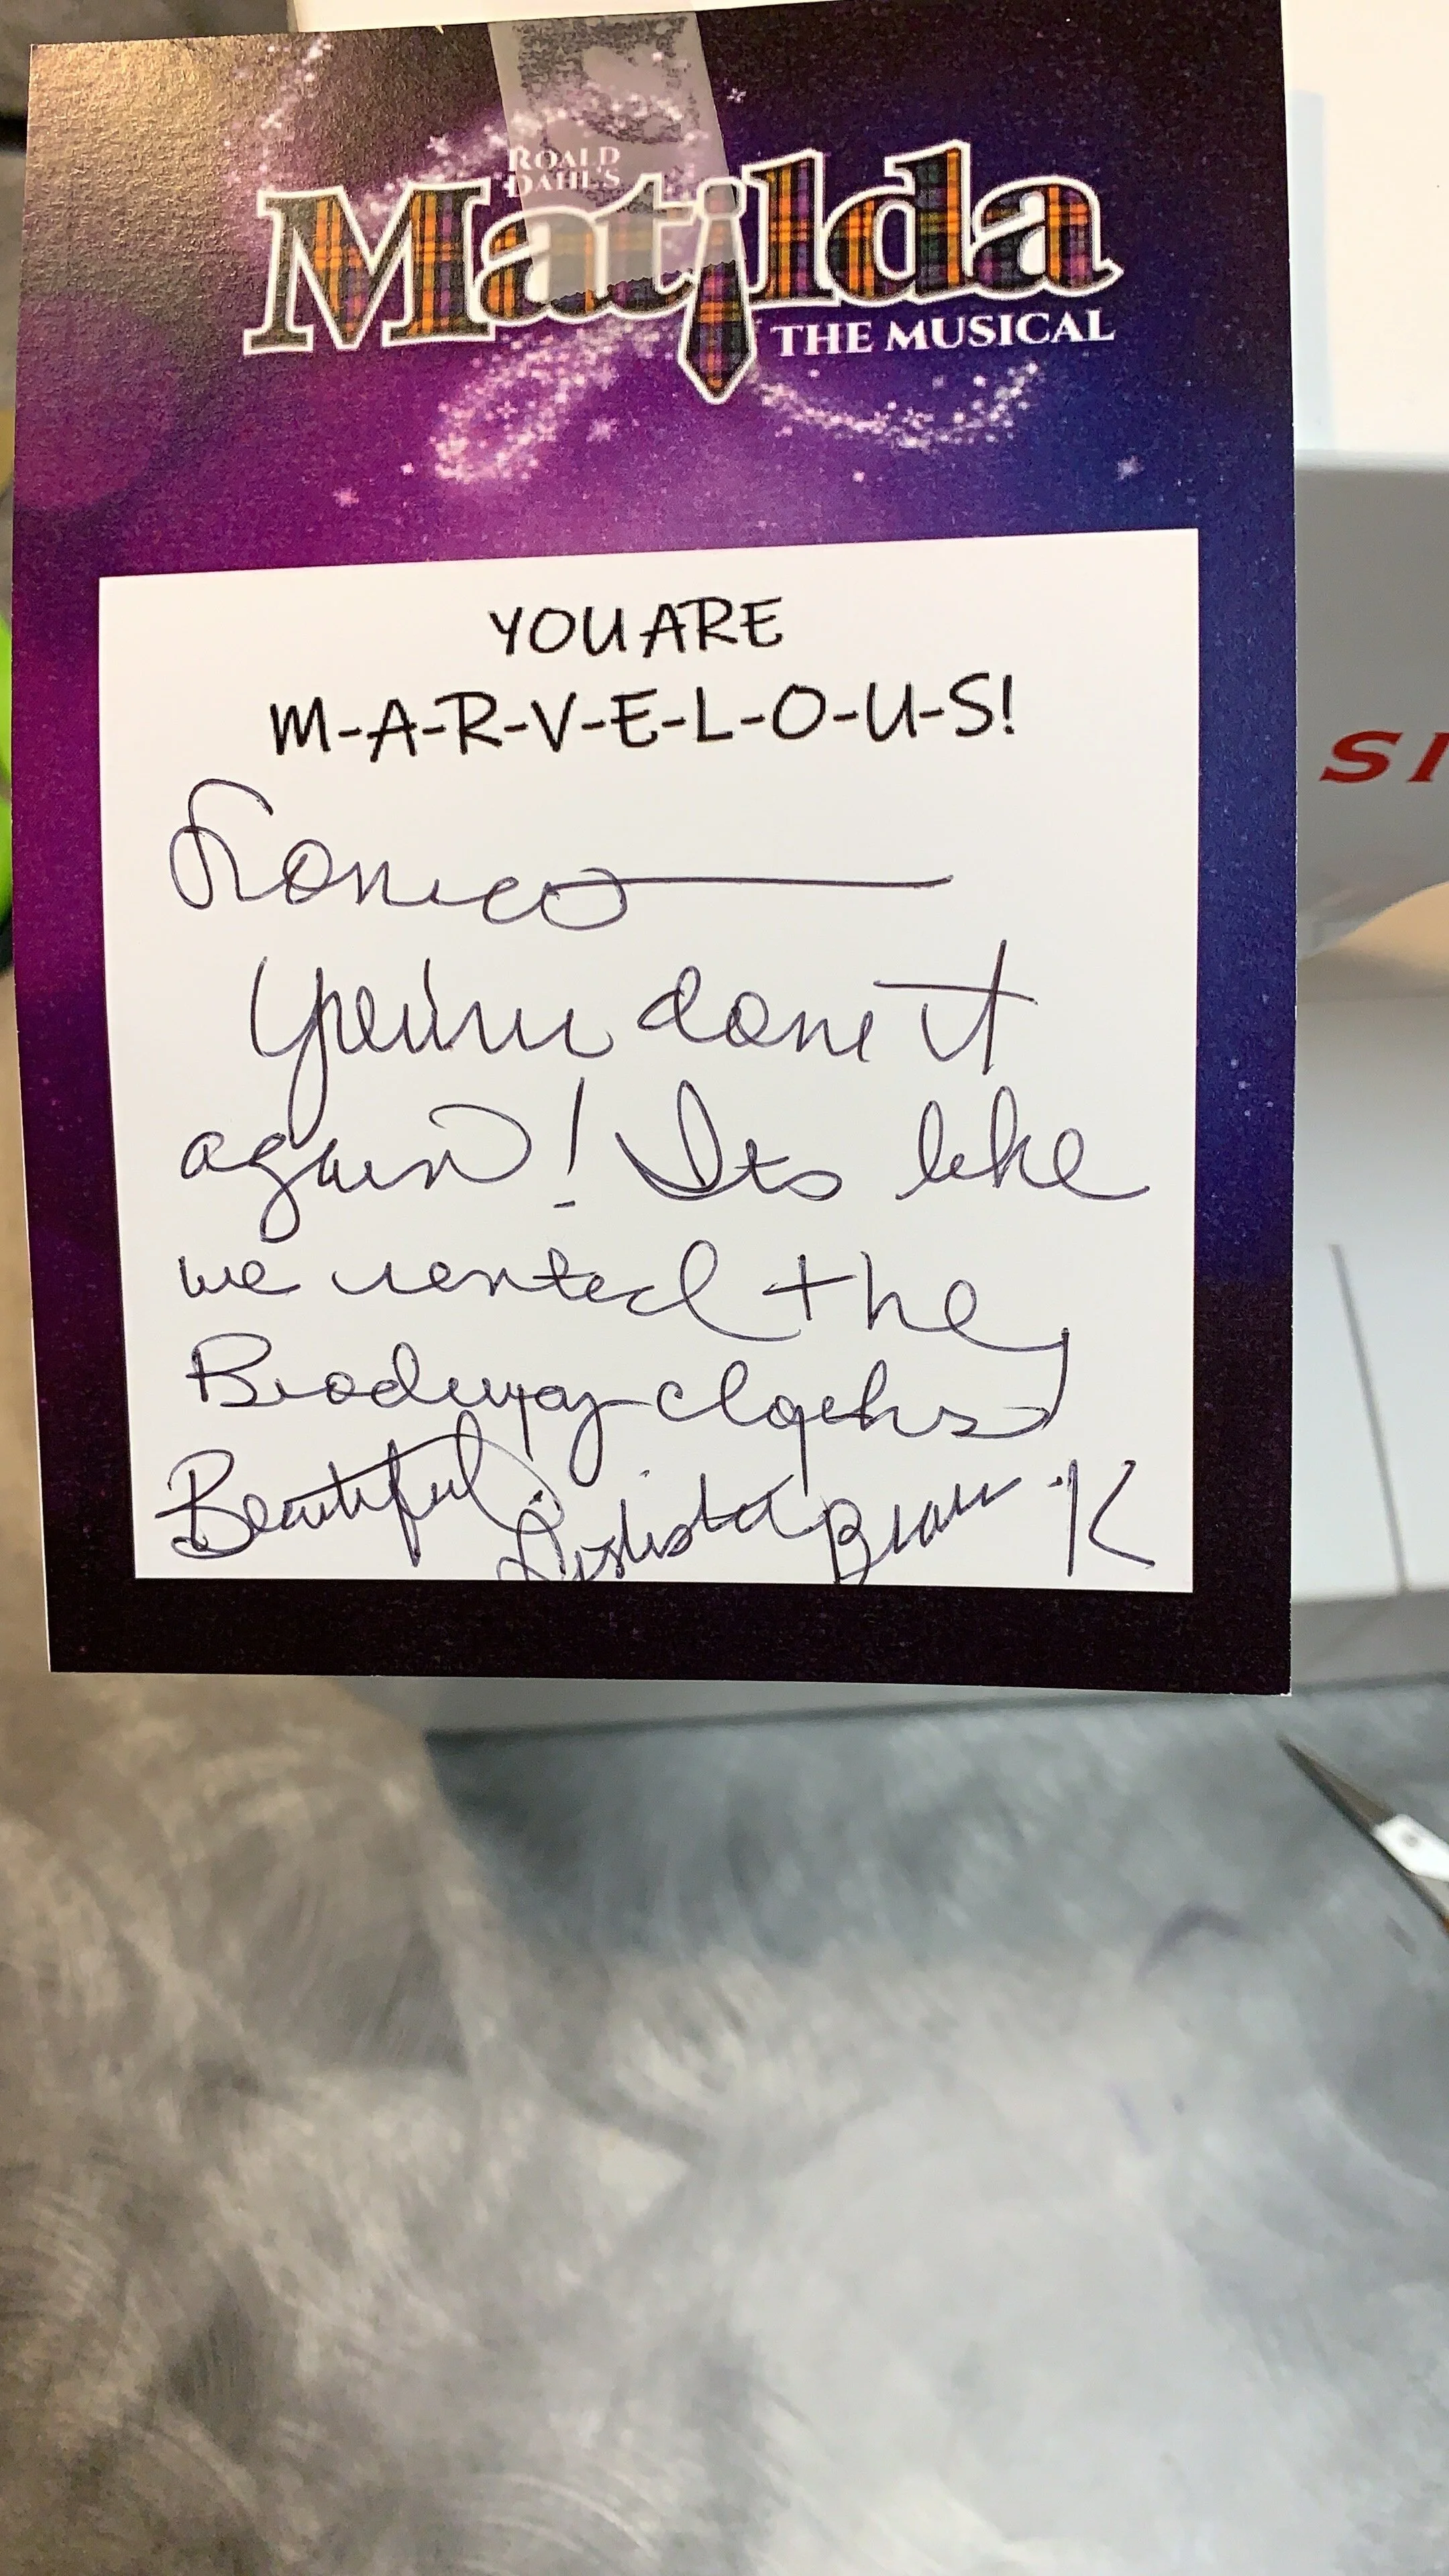 ROALD
DAHL'S
Matilda
THE MUSICAL
YOU ARE
M-A-R-V-E-L-O-U-S!
Romeo
You've done it
again! Its like
we rented the
Brodway
Beautiful. Brava K
SI